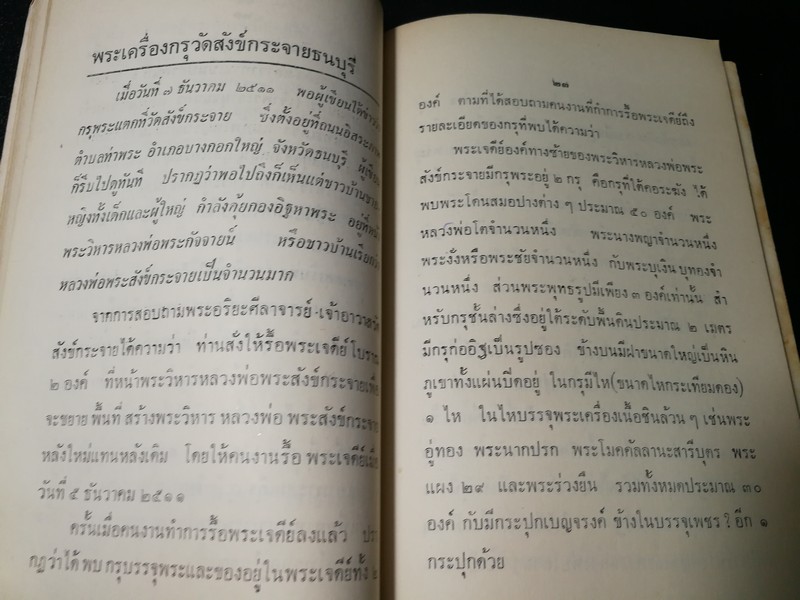 พระเครื่องกรุวัดสังข์กระจายธนบุรี
เมื่อวันที่ ๗ ธันวาคม ๒๕๑๑ พอผู้เขียนได้ข่าว
กรุพระแตกที่วัดสังข์กระจาย ซึ่งตั้งอยู่ที่ถนนอิสระภาพ
ตำบลท่าพระ อำเภอบางกอกใหญ่ จังหวัดธนบุรี ผู้เขียน
ก็รีบไปดูทันที ปรากฏว่าพอไปถึงก็เห็นแต่ชาวบ้านชาย
หญิงทั้งเด็กและผู้ใหญ่ กำลังคุ้ยกองอิฐหาพระ อยู่ที่หน้า
พระวิหารหลวงพ่อพระกัจจายน์ หรือชาวบ้านเรียกว่า
หลวงพ่อพระสังข์กระจายเป็นจำนวนมาก
จากการสอบถามพระอริยะศีลาจารย์ เจ้าอาวาสวัด
สังข์กระจายได้ความว่า ท่านสั่งให้รื้อพระเจดีย์โบราณ
๒ องค์ ที่หน้าพระวิหารหลวงพ่อพระสังข์กระจายเพื่อ
จะขยาย พื้นที่ สร้างพระวิหาร หลวงพ่อ พระสังข์กระจาย
หลังใหม่แทนหลังเดิม โดยให้คนงานรื้อ พระเจดีย์เมื่อ
วันที่ ๕ ธันวาคม ๒๕๑๑
ครั้นเมื่อคนงานทำการรื้อพระเจดีย์ลงแล้ว ปรา
กฏว่าได้ พบ กรุบรรจุพระและของอยู่ในพระเจดีย์ทั้ง ๒
๒๓
องค์ ตามที่ได้สอบถามคนงานที่ทำการรื้อพระเจดีย์ถึง
รายละเอียดของกรุที่พบได้ความว่า
พระเจดีย์องค์ทางซ้ายของพระวิหารหลวงพ่อพระ
สังข์กระจายมีกรุพระอยู่ ๒ กรุ คือกรุที่ใต้คอระฆัง ได้
พบพระโคนสมอปางต่าง ๆ ประมาณ ๕๐ องค์ พระ
หลวงพ่อโตจำนวนหนึ่ง พระนางพญาจำนวนหนึ่ง
พระงั่งหรือพระชัยจำนวนหนึ่ง กับพระบุเงิน บุทองจำ
นวนหนึ่ง ส่วนพระพุทธรูปมีเพียง ๓ องค์เท่านั้น สำ
หรับกรุชั้นล่างซึ่งอยู่ใต้ระดับพื้นดินประมาณ ๒ เมตร
มีกรุก่ออิฐเป็นรูปซอง ข้างบนมีฝาขนาดใหญ่เป็นหิน
ภูเขาทั้งแผ่นปิดอยู่ ในกรุมีไห(ขนาดไหกระเทียมดอง)
๑ ไห ในไหบรรจุพระเครื่องเนื้อชินล้วน ๆ เช่นพระ
อู่ทอง พระนาคปรก พระโมคคัลลานะสารีบุตร พระ
แผง ๒๙ และพระร่วงยืน รวมทั้งหมดประมาณ ๓๐
องค์ กับมีกระปุกเบญจรงค์ ข้างในบรรจุเพชร ? อีก ๑
กระปุกด้วย